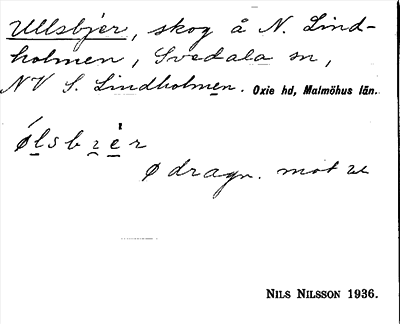 Ullsbjer, skog å N. Lind-
holmen, Svedala sn,
NV S. Lindholmen. Oxie hd, Malmöhus län.
ølsbɪer
ø dragn. mot u
NILS NILSSON 1936.